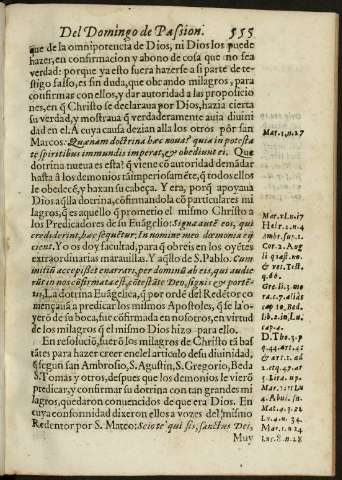 Del Domingo de Passion. 555
que de la omnipotencia de Dios, ni Dios los puede
hazer, en confirmacion y abono de cosa que no sea
verdad: porque ya esto fuera hazerse a si parte de tes-
tigo falso, es sin duda, que obrando milagros, para
confirmar con ellos, y dar autoridad a las proposicio
nes, en q̃ Christo se declaraua por Dios, hazia cierta
su verdad, y mostraua q̃ verdaderamente auia diuini
dad en el. A cuya causa dezian alla los otros por san
Marcos: Quænam doctrina hæc noua? quia in potesta
te spiritibus immundis imperat, & obediunt ei. Que
dotrina nueua es esta? q̃ viene cõ autoridad de mãdar
hasta â los demonios tã imperiosamẽte, q̃ todos ellos
le obedecẽ, y baxan su cabeça. Y era, porq̃ apoyaua
Dios aq̃lla dotrina, cõfirmandola cõ particulares mi
lagros, q̃ es aquello q̃ prometio el mismo Christo a
los Predicadores de su Euãgelio: Signa autẽ eos, qui
crediderint, hæc sequẽtur: In nomine meo dæmonia eij
cient. Yo os doy facultad, para q̃ obreis en los oyẽtes
extraordinarias marauillas. Y aq̃sto de S. Pablo. Cum
initiũ accepisset enarrari, per dominũ ab eis, qui audie
rũt in nos cõfirmata est, cõtestãte Deo, signis & portẽ-
tis. La dotrina Euãgelica, q̃ por ordẽ del Redẽtor co
mençaua a predicar los mismos Apostoles, q̃ la o-
yerõ de su boca, fue confirmada en nosotros, en virtud
de los milagros q̃ el mismo Dios hizo para ello.
En resolucion, fuerõ los milagros de Christo tã bas
tãtes para hazer creer en el el articulo de su diuinidad,
q̃ segun san Ambrosio, S. Agustin, S. Gregorio, Beda
S. Tomas y otros, despues que los demonios le vierõ
predicar, y confirmar su dotrina con tan grandes mi
lagros, quedaron conuencidos de que era Dios. En
cuya conformidad dixeron ellos a vozes del mismo
Redentor por S. Mateo: Scio te qui sis, sanctus Dei,
Muy
Mar. 1. n. 27
Mar. vl. n. 17
Hebr. 2. n. 4
Ambr. sur. 1.
Cor. 2. Aug
li quæst. no.
& ve. Test.
q. 66.
Greg. li. 3. mo
ra. c. 7. alias
D. Tho. 3. p
q. 44. art. 1.
& art. 2. ad
Mat. 4. 3. 22
Luc. 4. n. 34.
Mar. 1. n. 24
Luc. 8. n. 28